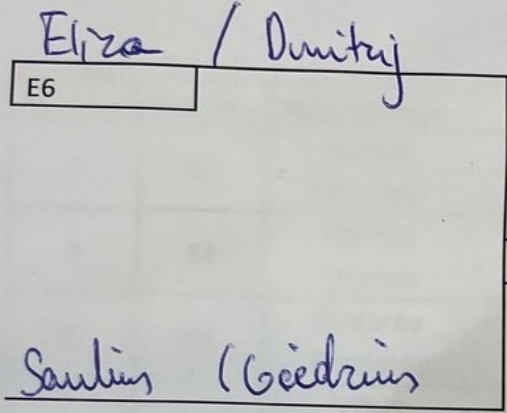 Eliza / Dmitrij
E6
Saulius (Giedrius